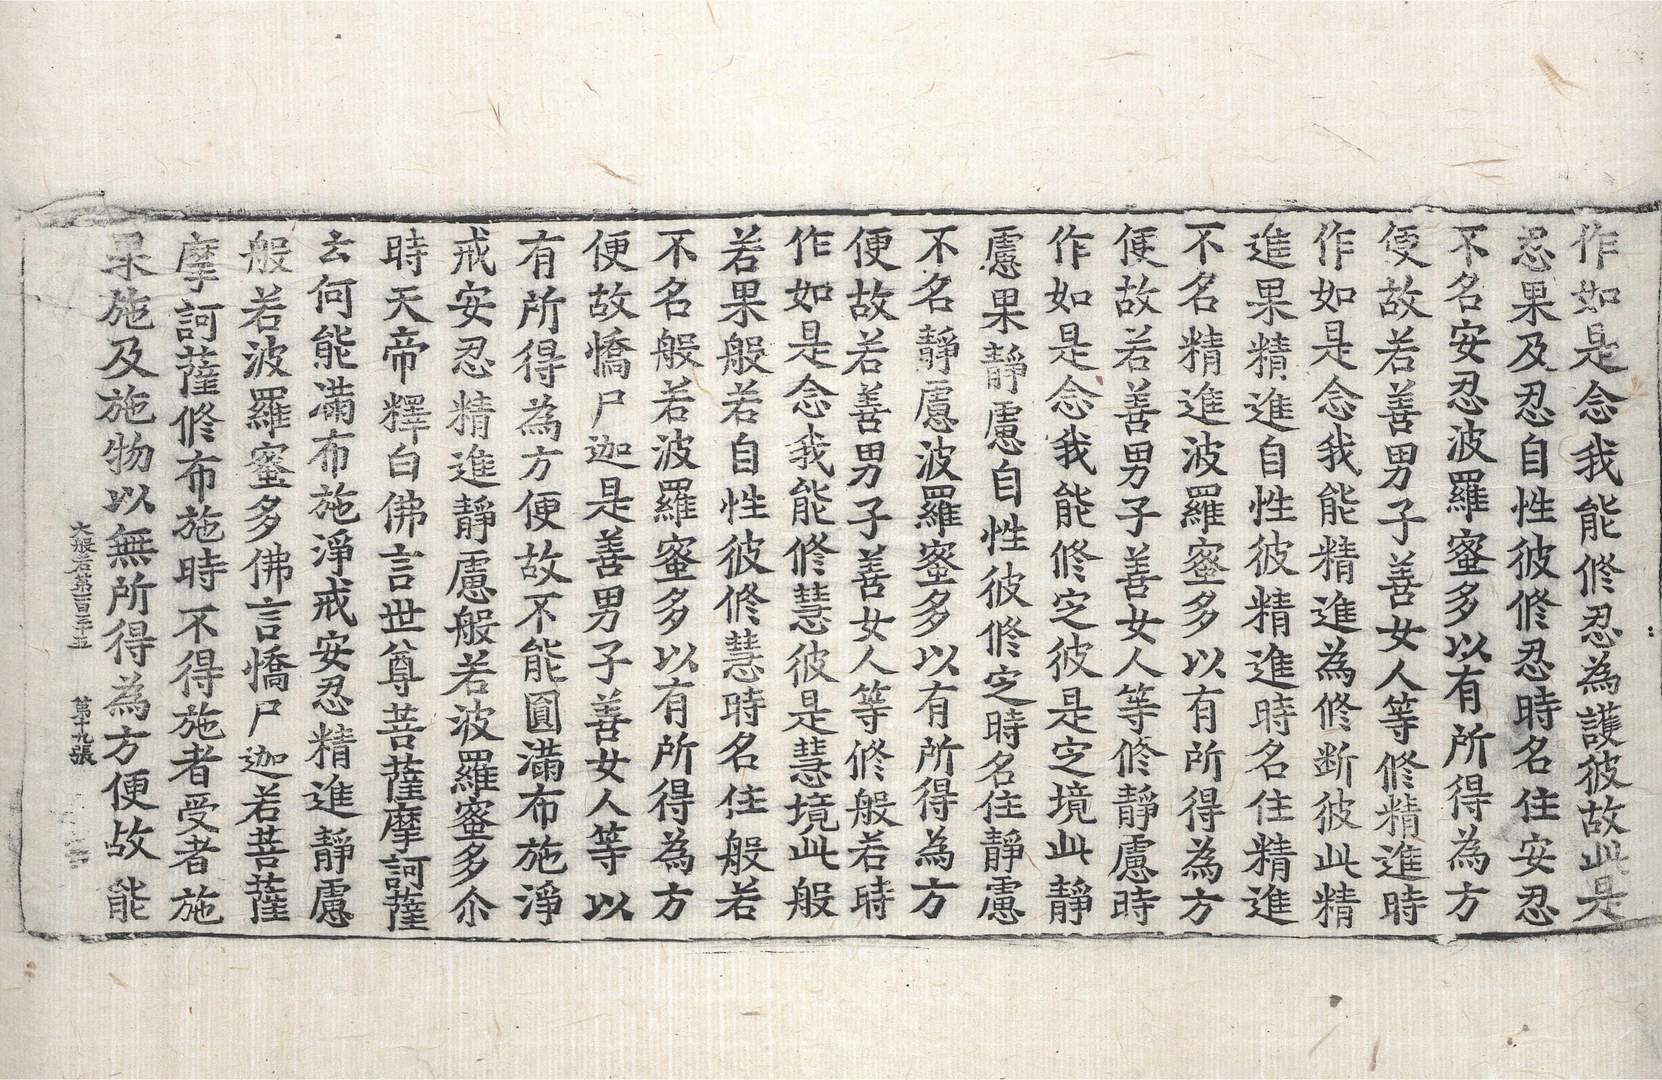 作如是念我能修忍為護彼故此是
忍果及忍自性彼修忍時名住安忍
不名安忍波羅蜜多以有所得為方
便故若善男子善女人等修精進時
作如是念我能精進為修断彼此精
進果精進自性彼精進時名住精進
不名精進波羅蜜多以有所得為方
便故若善男子善女人等修靜慮時
作如是念我能修定彼是定境此靜
慮果靜慮自性彼修定時名住靜慮
不名靜慮波羅蜜多以有所得為方
便故若善男子善女人等修般若時
作如是念我能修慧彼是慧境此般
若果般若自性彼修慧時名住般若
不名般若波羅蜜多以有所得為方
便故憍尸迦是善男子善女人等以
有所得為方便故不能圓滿布施淨
戒安忍精進靜慮般若波羅蜜多尒
時天帝釋白佛言世尊菩薩摩訶薩
云何能滿布施淨戒安忍精進靜慮
般若波羅蜜多佛言憍尸迦若菩薩
摩訶薩修布施時不得施者受者施
果施及施物以無所得為方便故能
大般若第一百三十五 第十九張